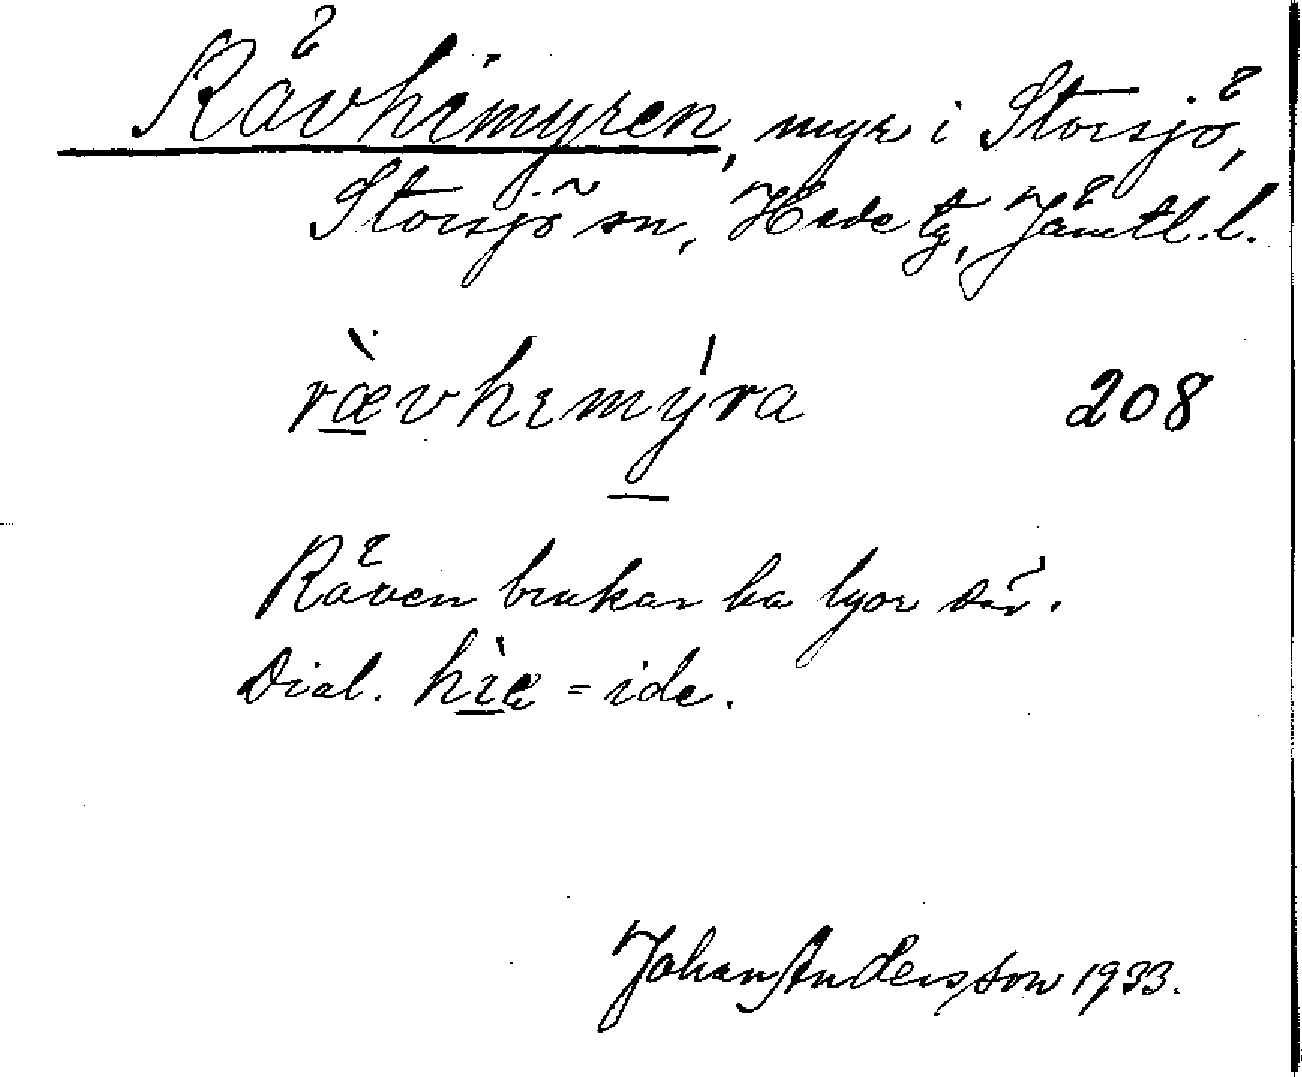 Rävhimyren, myr i Storsjö,
Storsjö sn, Hede tg, Jämtl. l.
rævhımýra 208
Räven brukar ha lyor där.
Dial. hı̀e = ide.
Johan Andersson 1933.